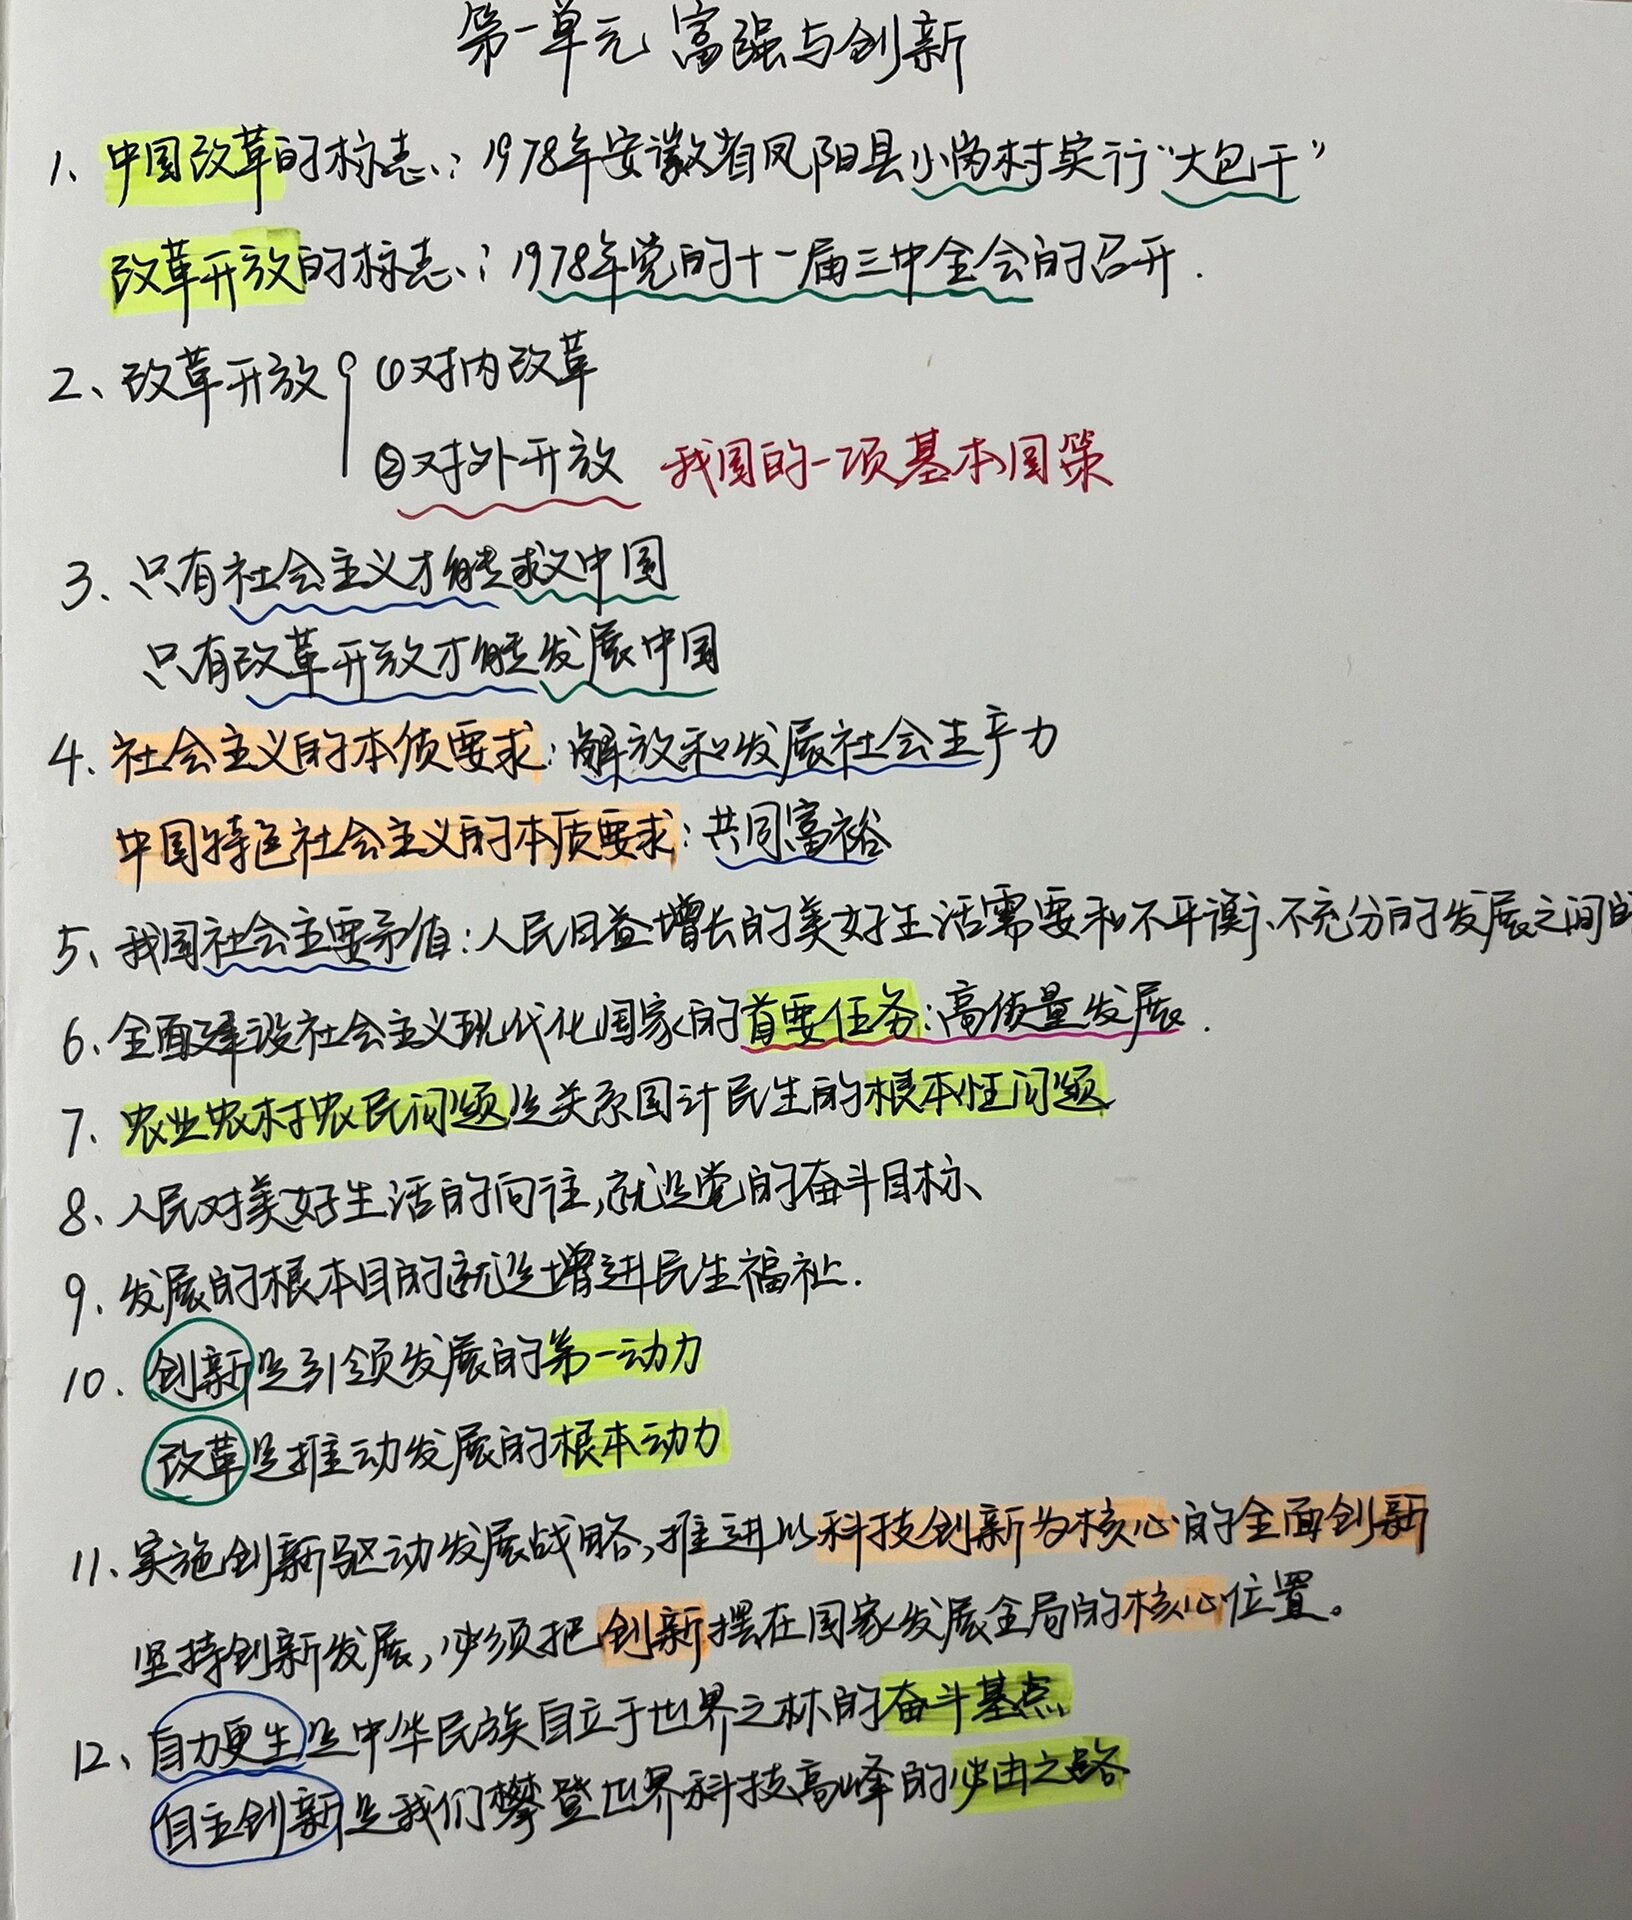 第一单元 富强与创新
1、中国改革的标志：1978年安徽省凤阳县小岗村实行“大包干”
改革开放的标志：1978年党的十一届三中全会的召开.
2、改革开放 ①对内改革
②对外开放 我国的一项基本国策
3、只有社会主义才能救中国
只有改革开放才能发展中国
4、社会主义的本质要求：解放和发展社会生产力
中国特色社会主义的本质要求：共同富裕
5、我国社会主要矛盾：人民日益增长的美好生活需要和不平衡、不充分的发展之间的
6、全面建设社会主义现代化国家的首要任务：高质量发展.
7、农业农村农民问题是关系国计民生的根本性问题
8、人民对美好生活的向往，就是党的奋斗目标
9、发展的根本目的就是增进民生福祉.
10、创新是引领发展的第一动力
改革是推动发展的根本动力
11、实施创新驱动发展战略，推进以科技创新为核心的全面创新
坚持创新发展，必须把创新摆在国家发展全局的核心位置。
12、自力更生是中华民族自立于世界之林的奋斗基点
自主创新是我们攀登世界科技高峰的必由之路